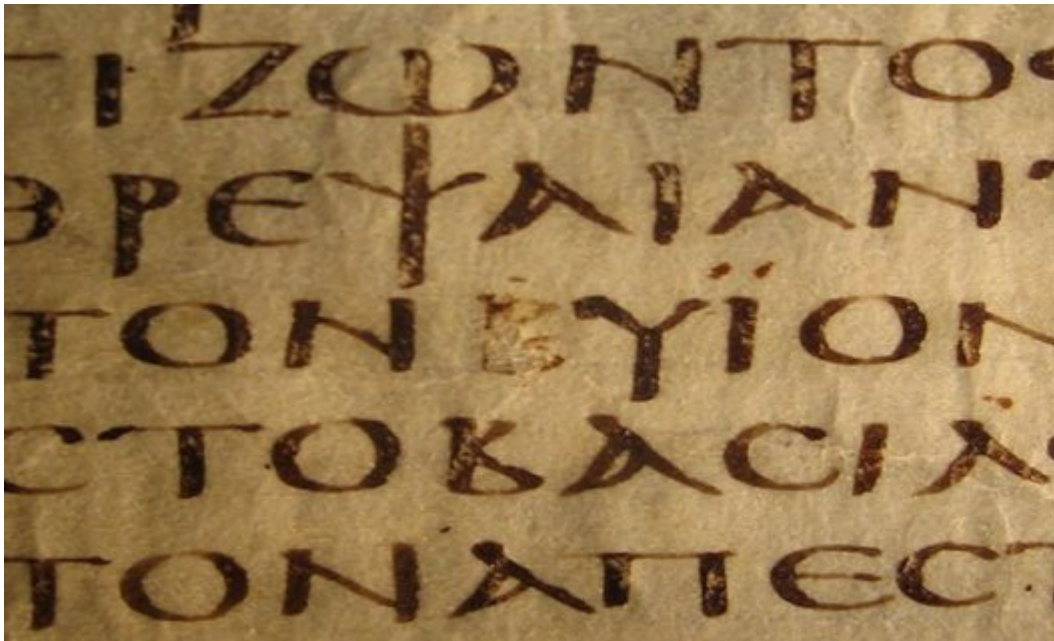 ΤΙΖΩΝΤΟϹ
ΘΡΕΨΑΙΑΝΤ
ΤΟΝ ΥΪΟΝ
ϹΤΟΒΑϹΙΛΕ
ΤΟΝΑΠΕϹΤ